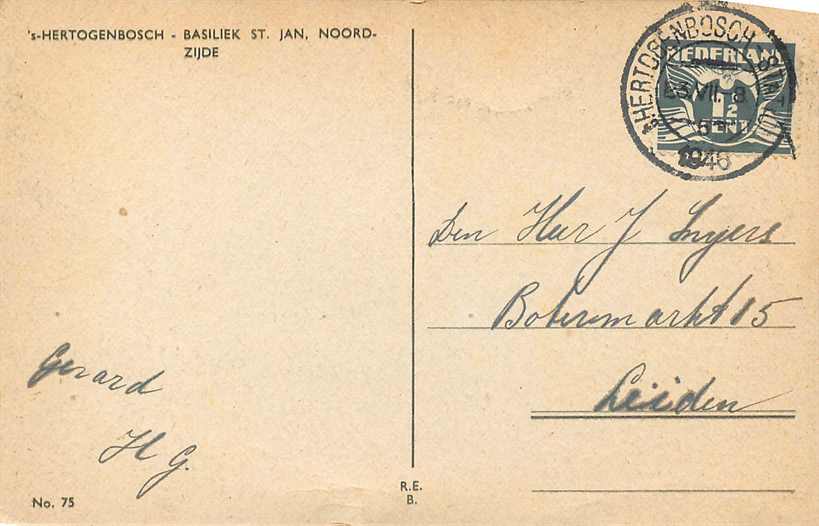 's-HERTOGENBOSCH - BASILIEK ST. JAN, NOORD-
ZIJDE
's-HERTOGENBOSCH
1946
NEDERLAND
1½
CENT
Den Heer J
Botermarkt 15
Leiden
Gerard
H G.
No. 75
R.E.
B.